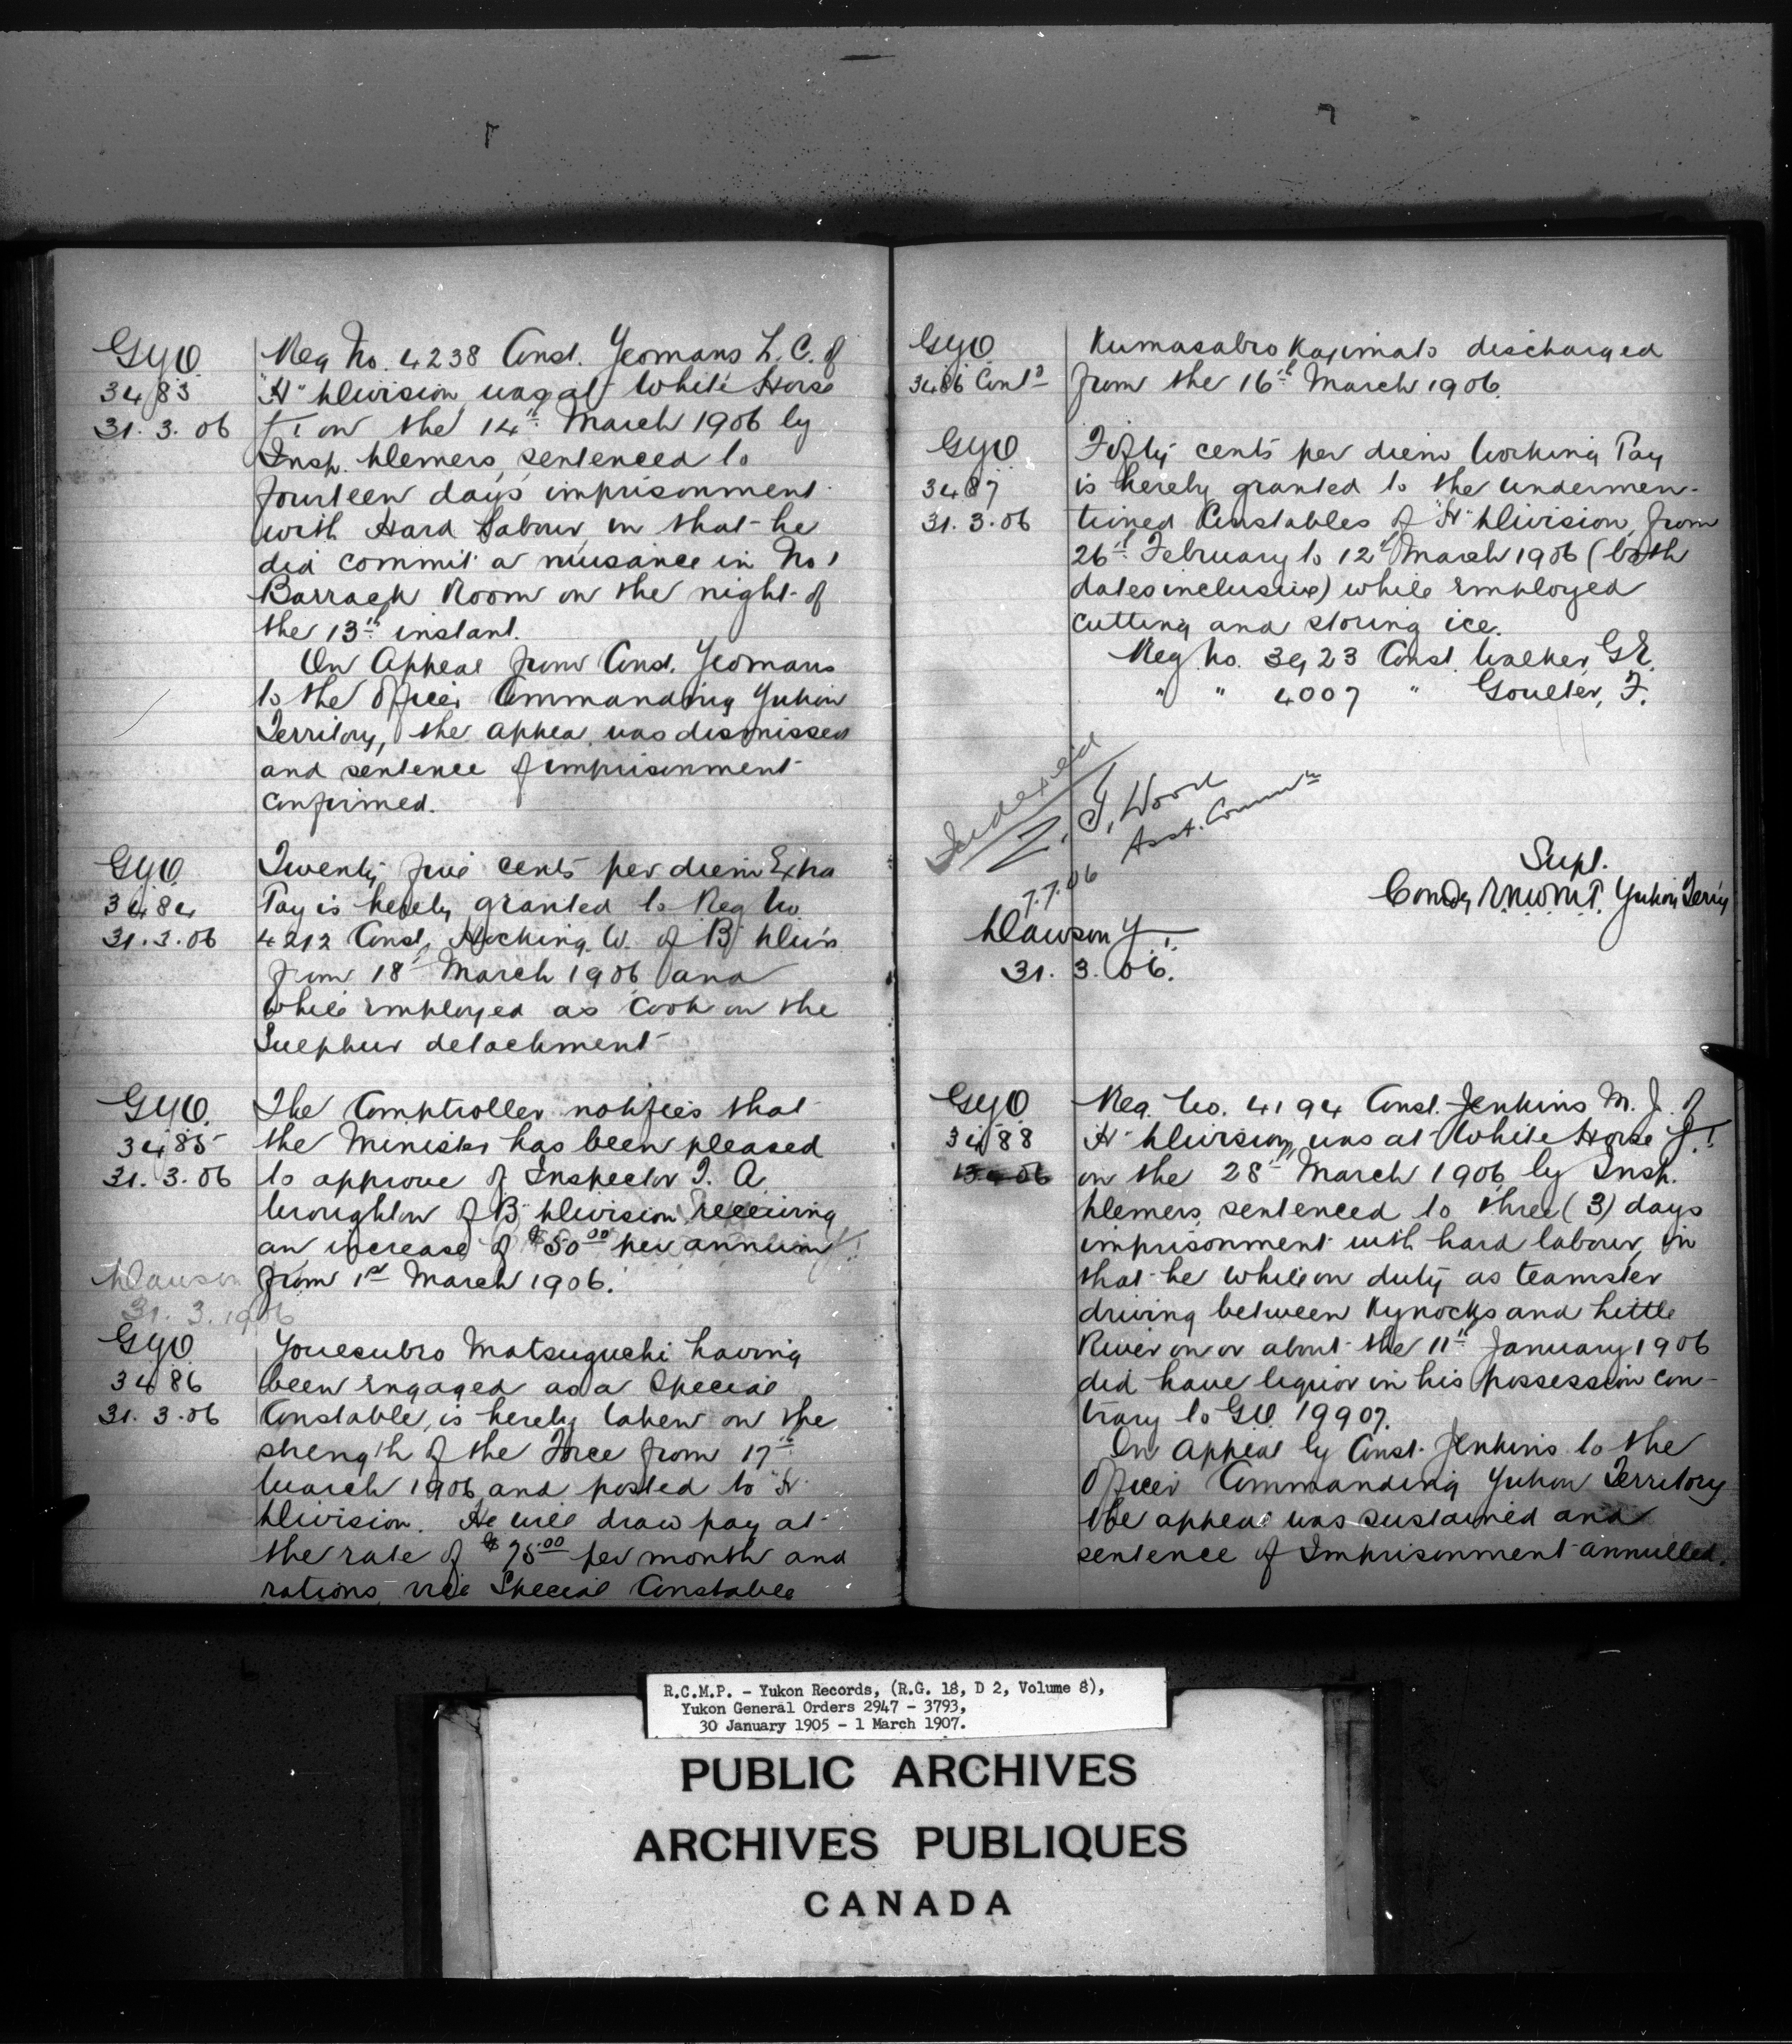 GYO
3483
31.3.06
Reg No. 4238 Const. Yeomans L. C. of
"H" Division was at White Horse
Y.T. on the 14th March 1906 by
Insp. Demers, sentenced to
fourteen days imprisonment
with Hard Labour, in that he
did commit a nuisance in No 1
Barrack Room on the night of
the 13th instant.
On Appeal from Const. Yeomans
to the Officer Commanding Yukon
Territory, the appeal was dismissed
and sentence of imprisonment
confirmed.
GYO
3484
31.3.06
Twenty five cents per diem Extra
Pay is hereby granted to Reg No
4212 Const. Hocking W. of B Div'n
from 18th March 1906 and
while employed as Cook on the
Sulphur detachment
GYO.
3485
31.3.06
The Comptroller notifies that
the Minister has been pleased
to approve of Inspector T. A.
Wroughton of "B" Division receiving
an increase of $50.00 per annum
from 1st March 1906.
Dawson
31.3.1906
GYO
3486
31.3.06
Youesubro Matsuguchi having
been engaged as a Special
Constable, is hereby taken on the
strength of the Force from 17th
March 1906 and posted to "H"
Division. He will draw pay at
the rate of $75.00 per month and
rations, vice Special Constable
GYO
3486 Contd
Kumasabro Kajimato discharged
from the 16th March 1906.
GYO
3487
31.3.06
Fifty cents per diem Working Pay
is hereby granted to the undermen-
tioned Constables of "H" Division, from
26th February to 12th March 1906 (both
dates inclusive) while employed
cutting and storing ice.
Reg. No. 3923 Const. Walker, G.E.
" " 4007 " Goulter, F.
Indexed
Z. T. Wood
Asst. Commr
7.7.06
Supt.
Comdg R.N.W.M.P. Yukon Terr'y
Dawson Y.T.
31.3.06.
GYO
3488
Reg. No. 4194 Const. Jenkins M. J. of
"H" Division, was at White Horse Y.T.
on the 28th March 1906 by Insp.
Demers, sentenced to three (3) days
imprisonment with hard labour, in
that he while on duty as teamster
driving between Kynocks and Little
River on or about the 11th January 1906
did have liquor in his possession con-
trary to G.O. 19907.
On Appeal by Const. Jenkins to the
Officer Commanding Yukon Territory
the appeal was sustained and
sentence of Imprisonment annulled.
R.C.M.P. - Yukon Records, (R.G. 18, D 2, Volume 8),
Yukon General Orders 2947 - 3793,
30 January 1905 - 1 March 1907.
PUBLIC ARCHIVES
ARCHIVES PUBLIQUES
CANADA